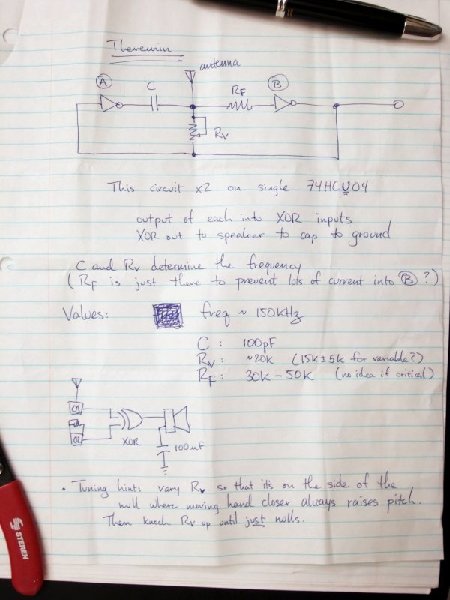 Theremin
antenna
A
C
RF
B
Rv
This circuit x2 on single 74HCU04
output of each into XOR inputs
XOR out to speaker to cap to ground
C and Rv determine the frequency
(RF is just there to prevent lots of current into B?)
Values: freq ~ 150kHz
C: 100pF
Rv: ~20k (15k±5k for variable?)
RF: 30k - 50k (no idea if critical)
XOR
100uf
• Tuning hint: vary Rv so that its on the side of the
null where moving hand closer always raises pitch.
Then knock Rv up until just nulls.